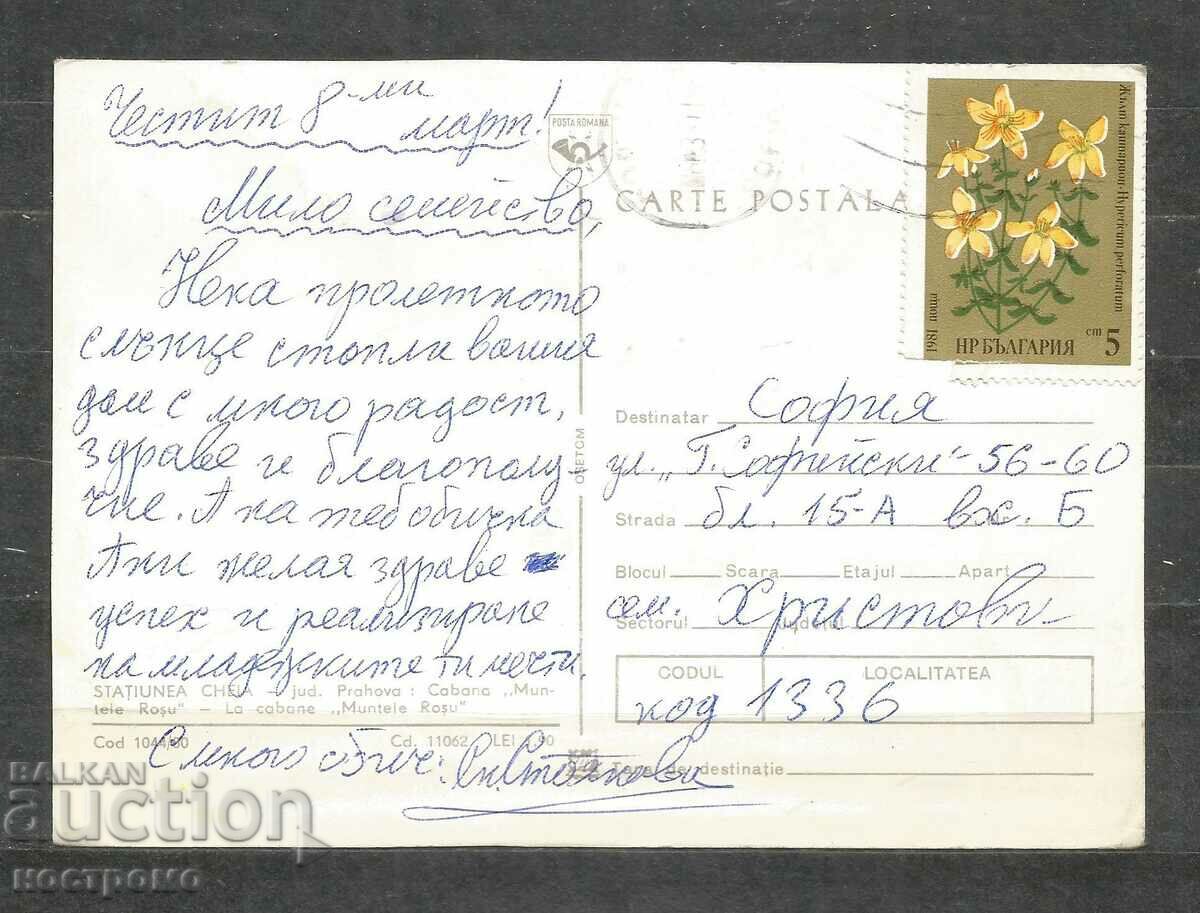 Честит 8-ми
март!
Мило семейство,
Нека пролетното
слънце стопли вашия
дом с много радост,
здраве и благополу-
чие. А на теб обичка
Ани желая здраве
успех и реализиране
на младежките ти мечти.
С много обич:
POSTA ROMANA
CARTE POSTALA
Жълт кантарион-Hypericum perforatum
1981 поща
НР БЪЛГАРИЯ
ст 5
Destinatar София
ул. "Г. Софийски" 56-60
Strada бл. 15-А вх. Б
Blocul Scara Etajul Apart
сем. Христови
Sectorul Județul
CODUL LOCALITATEA
код 1336
Țara de destinație
OETCM
STAȚIUNEA CHEIA – jud. Prahova : Cabana „Mun-
tele Roșu” – La cabane „Muntele Roșu”
Cod 1044/80 Cd. 11062 LEI 1,90
BALKAN
auction
костромо